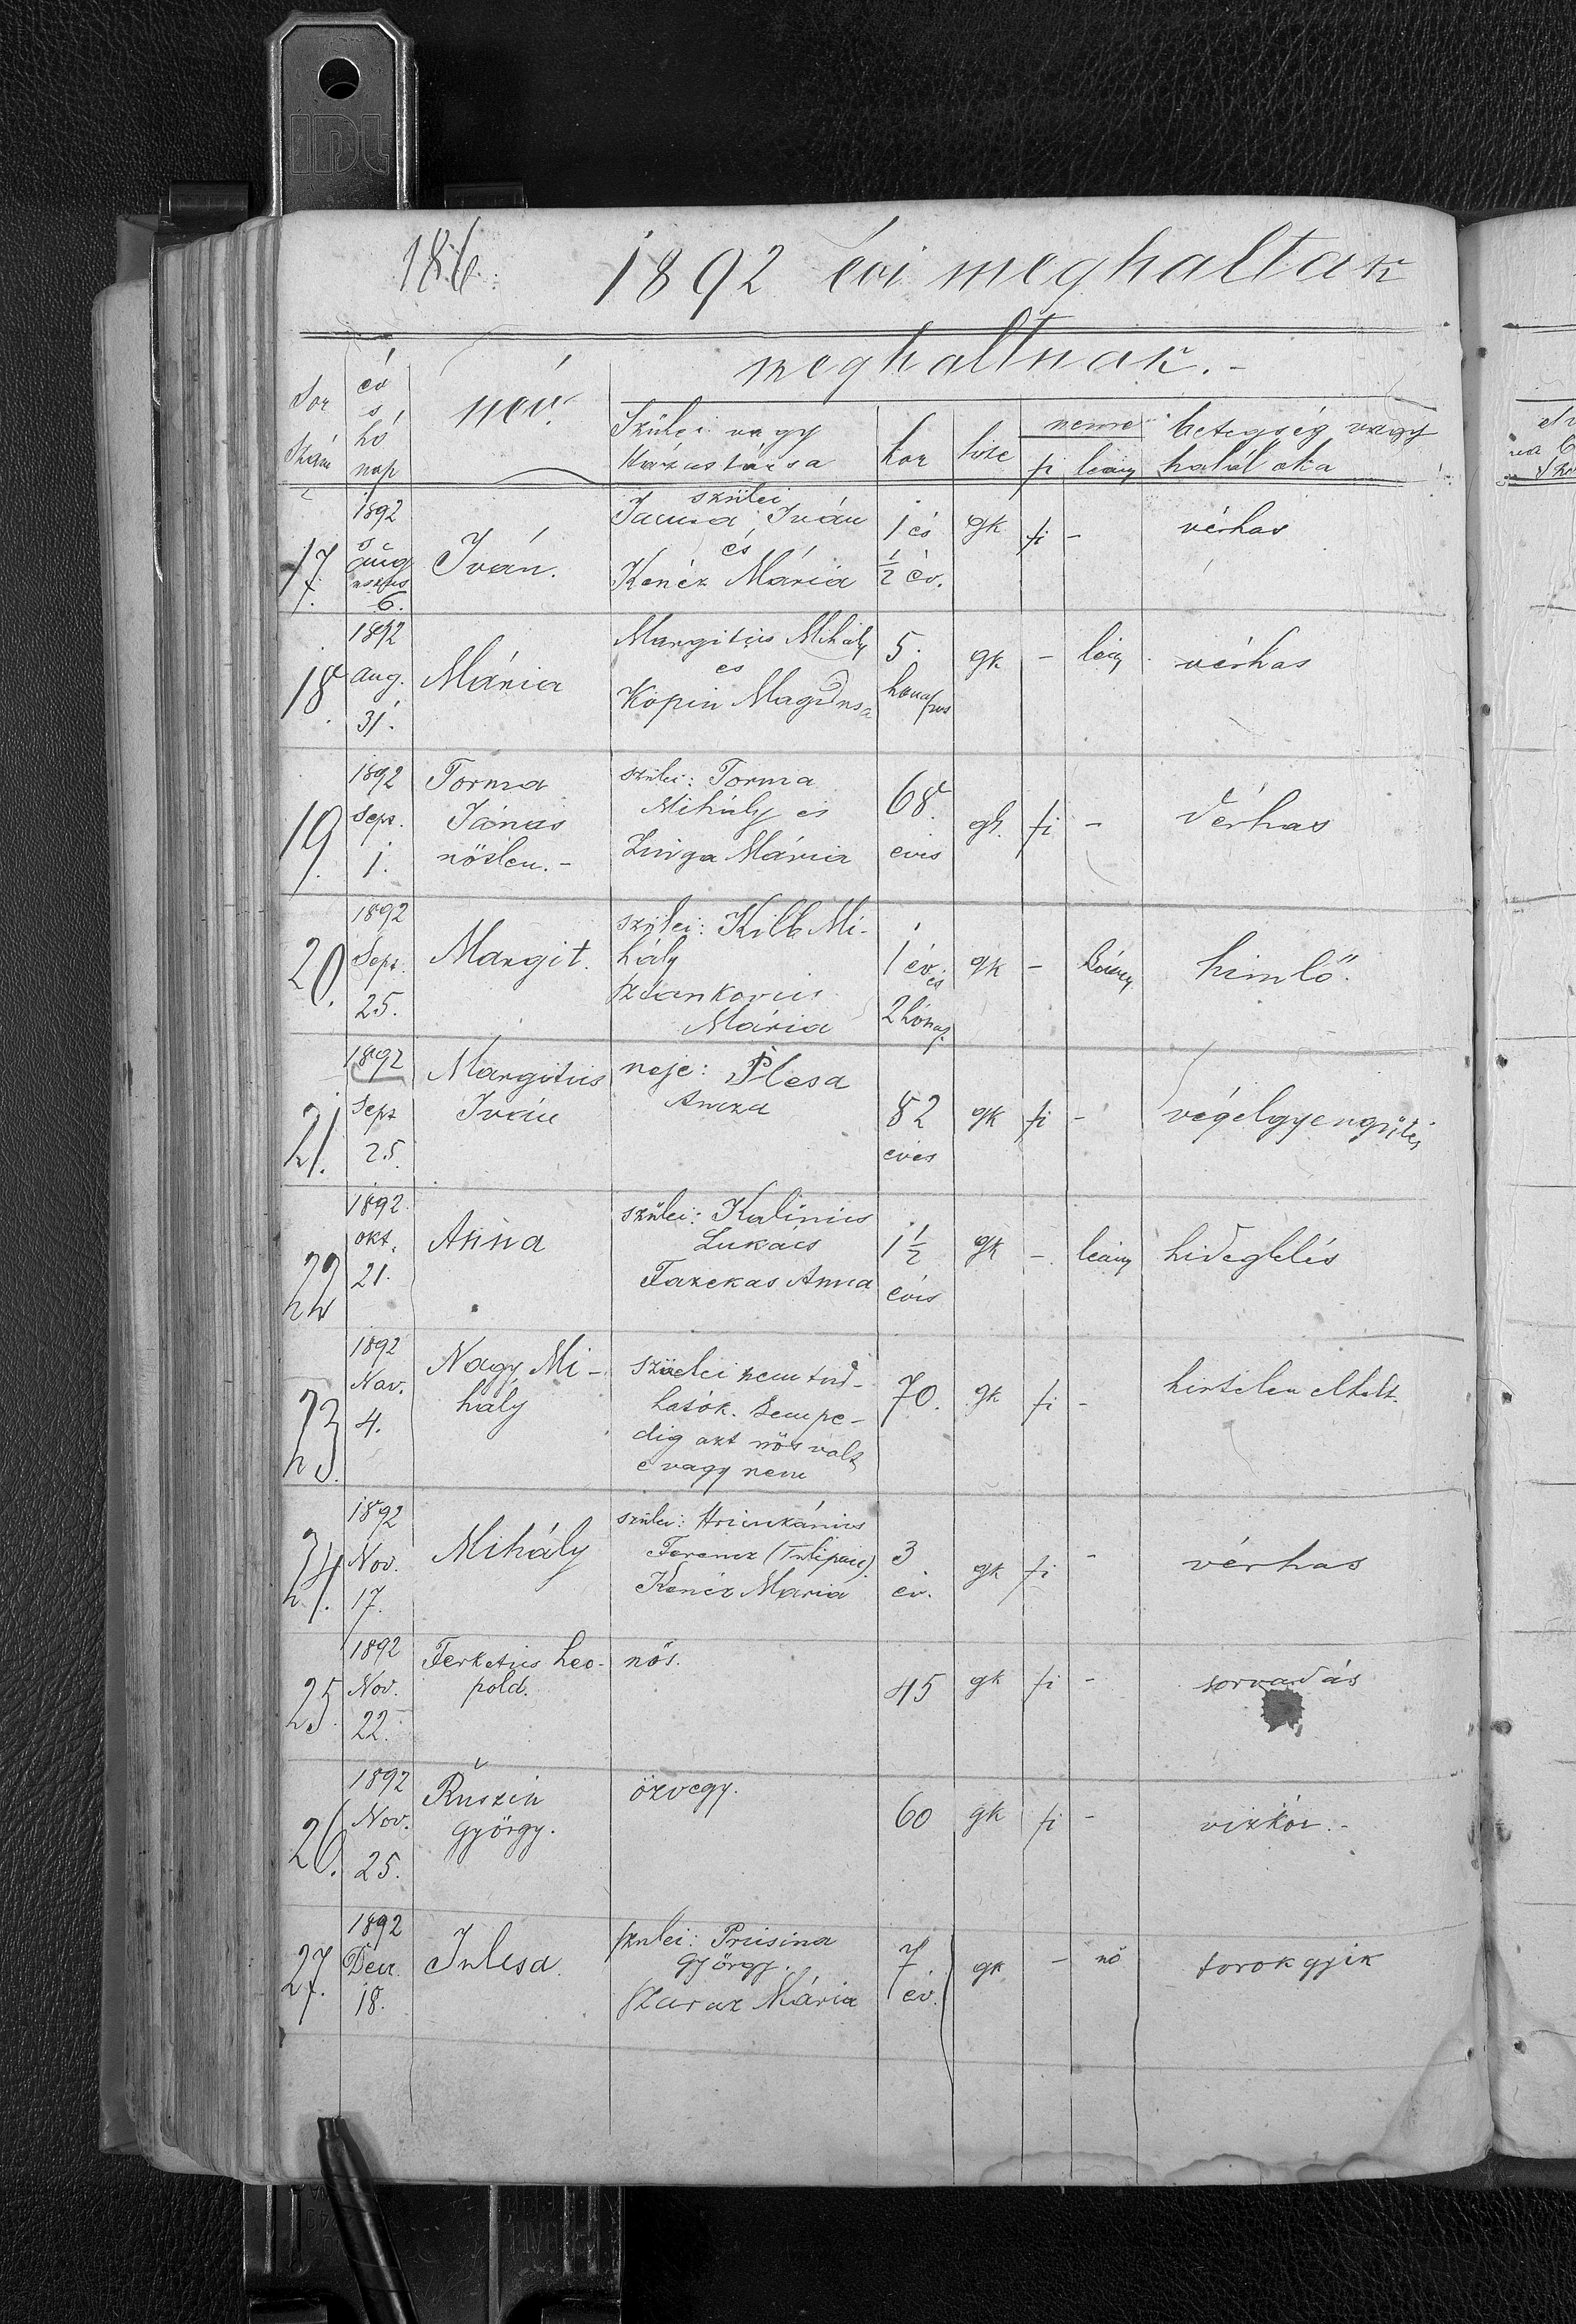 IDL
186.
1892 évi meghaltak
meghaltnak.-
Sor szám
év s hó nap
név.
Szülei vagy házastársa
kor
hite
neme
fi
leány
betegség vagy halál oka
17. 1892 aug usztus 6. Iván. szülei Iván és Kenéz Mária 1 és 1/2 év. gk fi - vérhas
18. 1892 aug. 31. Mária Margitics Mihály és Kopin 5. hónapos gk - leány vérhas
19. 1892 Sept. 1. Torma János nőtlen.- szülei: Torma Mihály és Mária 68. éves gk. fi - Vérhas
20. 1892 Sept. 25. Margit. szülei: Mihály Sztankovics Mária 1 év és 2 hónap. gk - leány himlő.
21. 1892 Sept 25. Margitics Iván neje: Plesa 82 éves gk fi - végelgyengülés
22 1892. okt. 21. Anna szülei: Kalinics Lukács Fazekas Anna 1 1/2 éves gk - leány hideglelés
23. 1892 Nov. 4. Nagy Mi-hály szülei nem tud-hatók. Sem pe-dig azt nős volt e vagy nem 70. gk fi - hirtelen elhalt.
24. 1892 Nov. 17. Mihály szülei: Ferencz Kenéz Maria 3 év. gk fi - vérhas
25. 1892 Nov. 22. Ferketics Leo-pold. nős. 45 gk fi - sorvadás
26. 1892 Nov. 25. Ruszin György. özvegy. 60 gk fi - vizkór.-
27. 1892 Dec. 18. Julcsa szülei: Prusina György. Szaraz Mária 7 év. gk - nő torokgyik